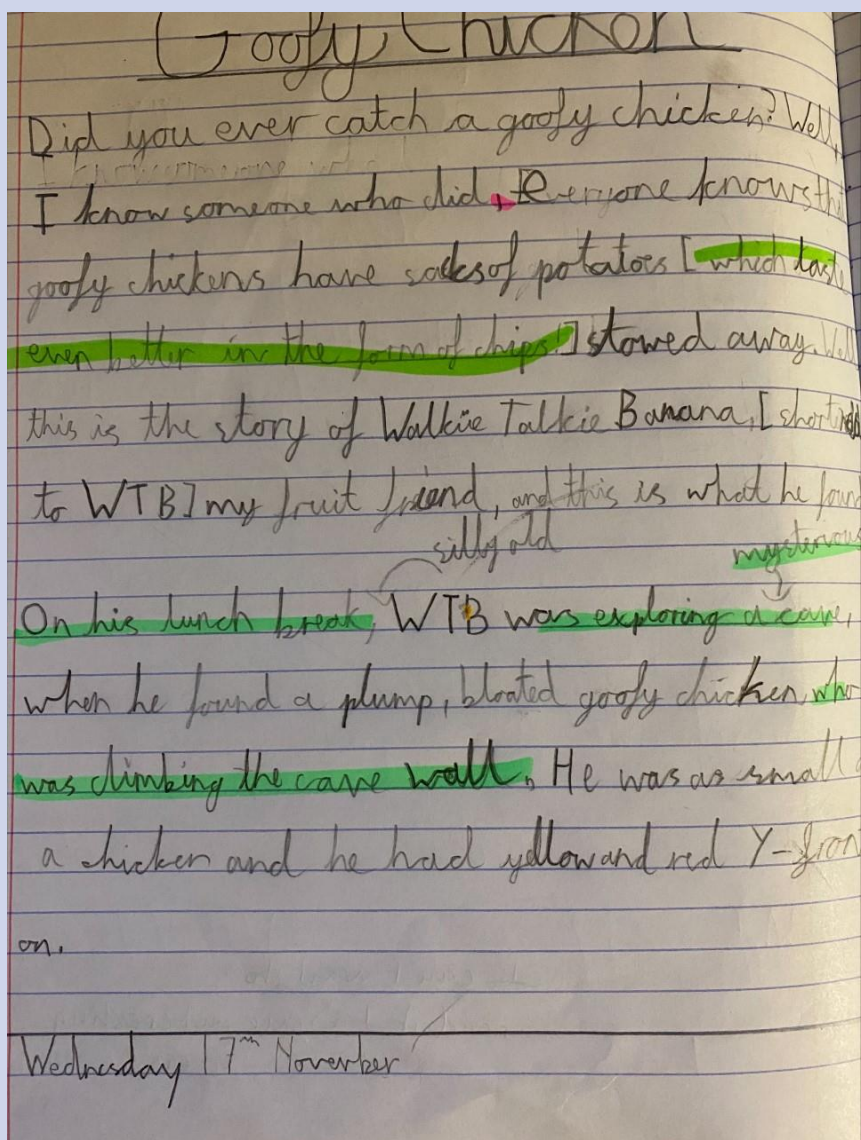 Goofy Chicken
Did you ever catch a goofy chicken? Well,
I know someone who did, Everyone knows th
goofy chickens have sacks of potatoes [which tast
even better in the form of chips!] stowed away. Well
this is the story of Walkie Talkie Banana, [short
to WTB] my fruit friend, and this is what he foun
silly old
mysterious
On his lunch break, WTB was exploring a cave,
when he found a plump, bloated goofy chicken who
was climbing the cave wall. He was as small a
a chicken and he had yellow and red Y-fron
on.
Wednesday 17th November